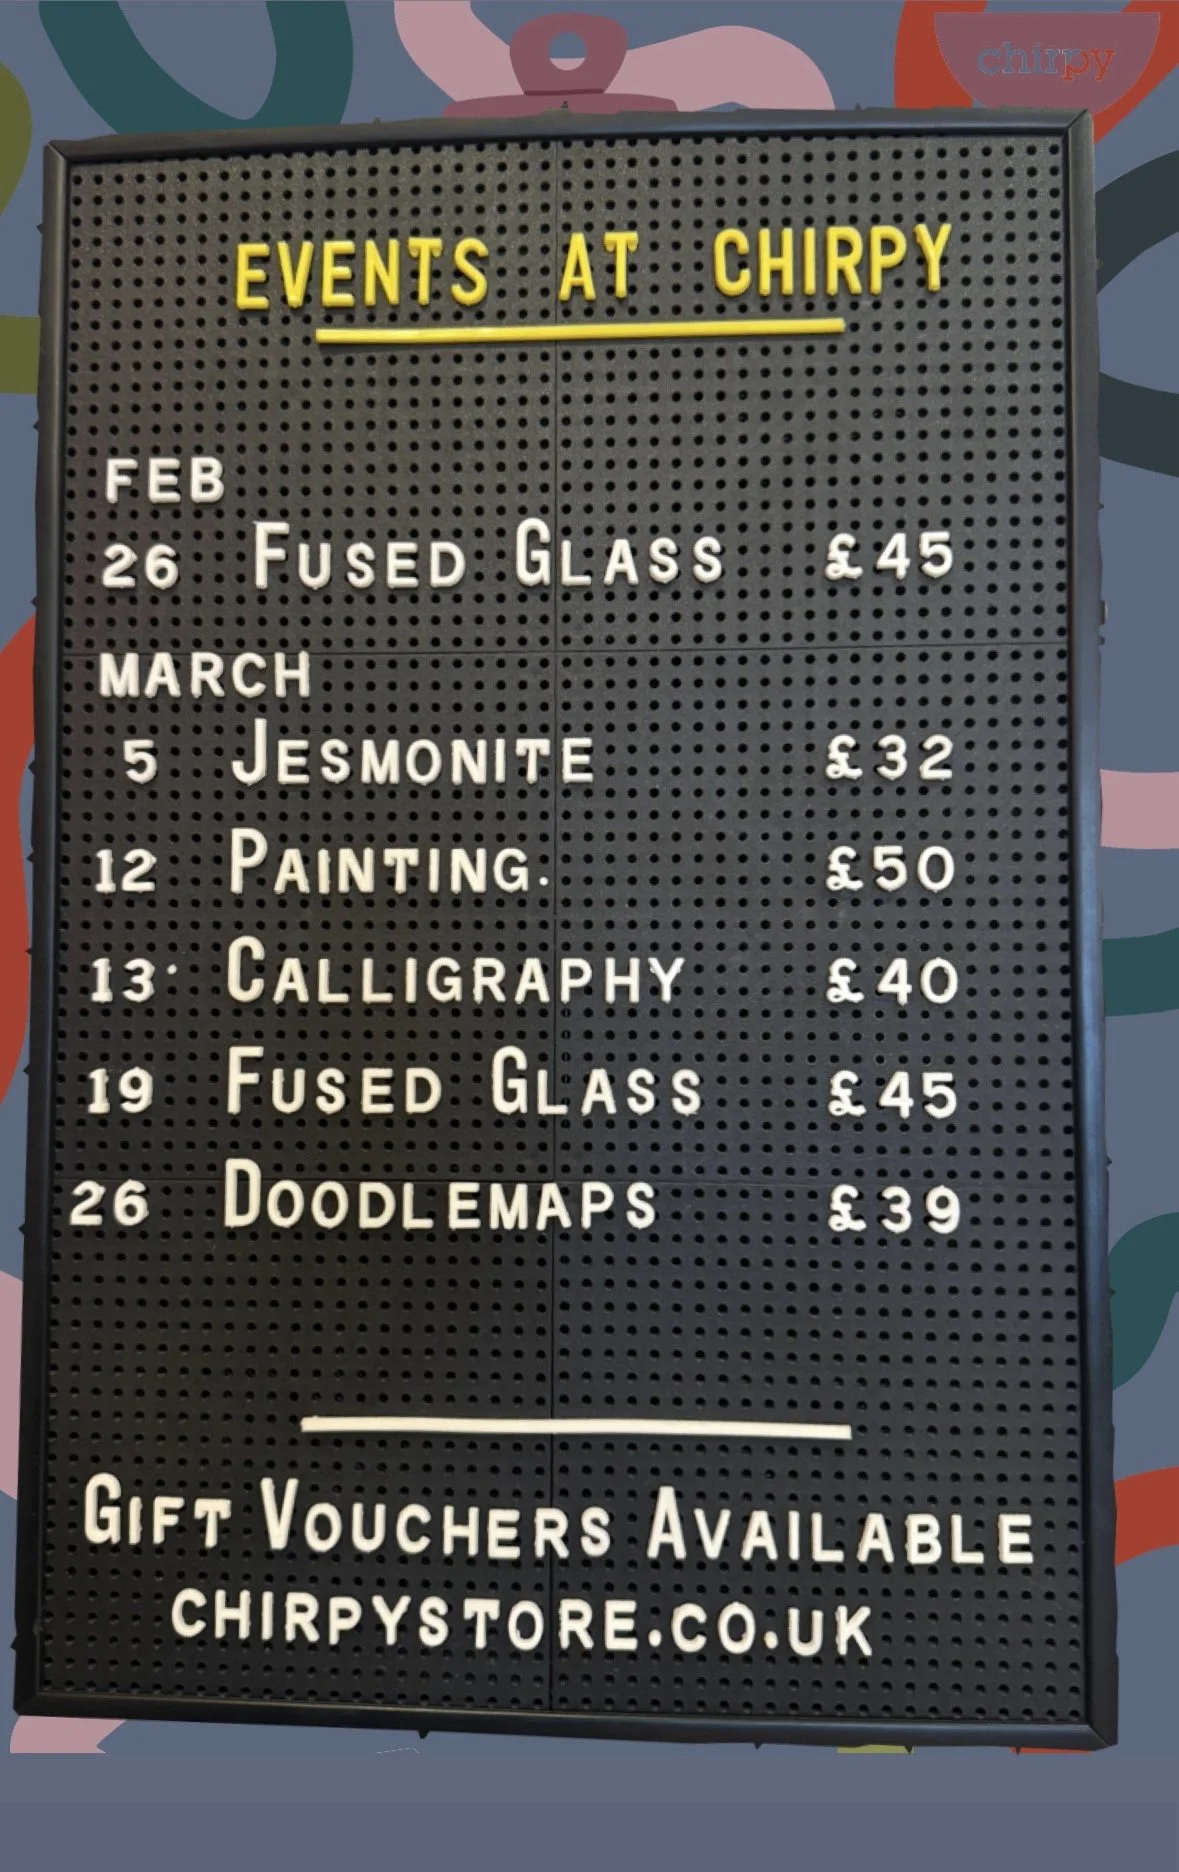 chirpy
EVENTS AT CHIRPY
FEB
26 FUSED GLASS £45
MARCH
5 JESMONITE £32
12 PAINTING. £50
13· CALLIGRAPHY £40
19 FUSED GLASS £45
26 DOODLEMAPS £39
GIFT VOUCHERS AVAILABLE
CHIRPYSTORE.CO.UK